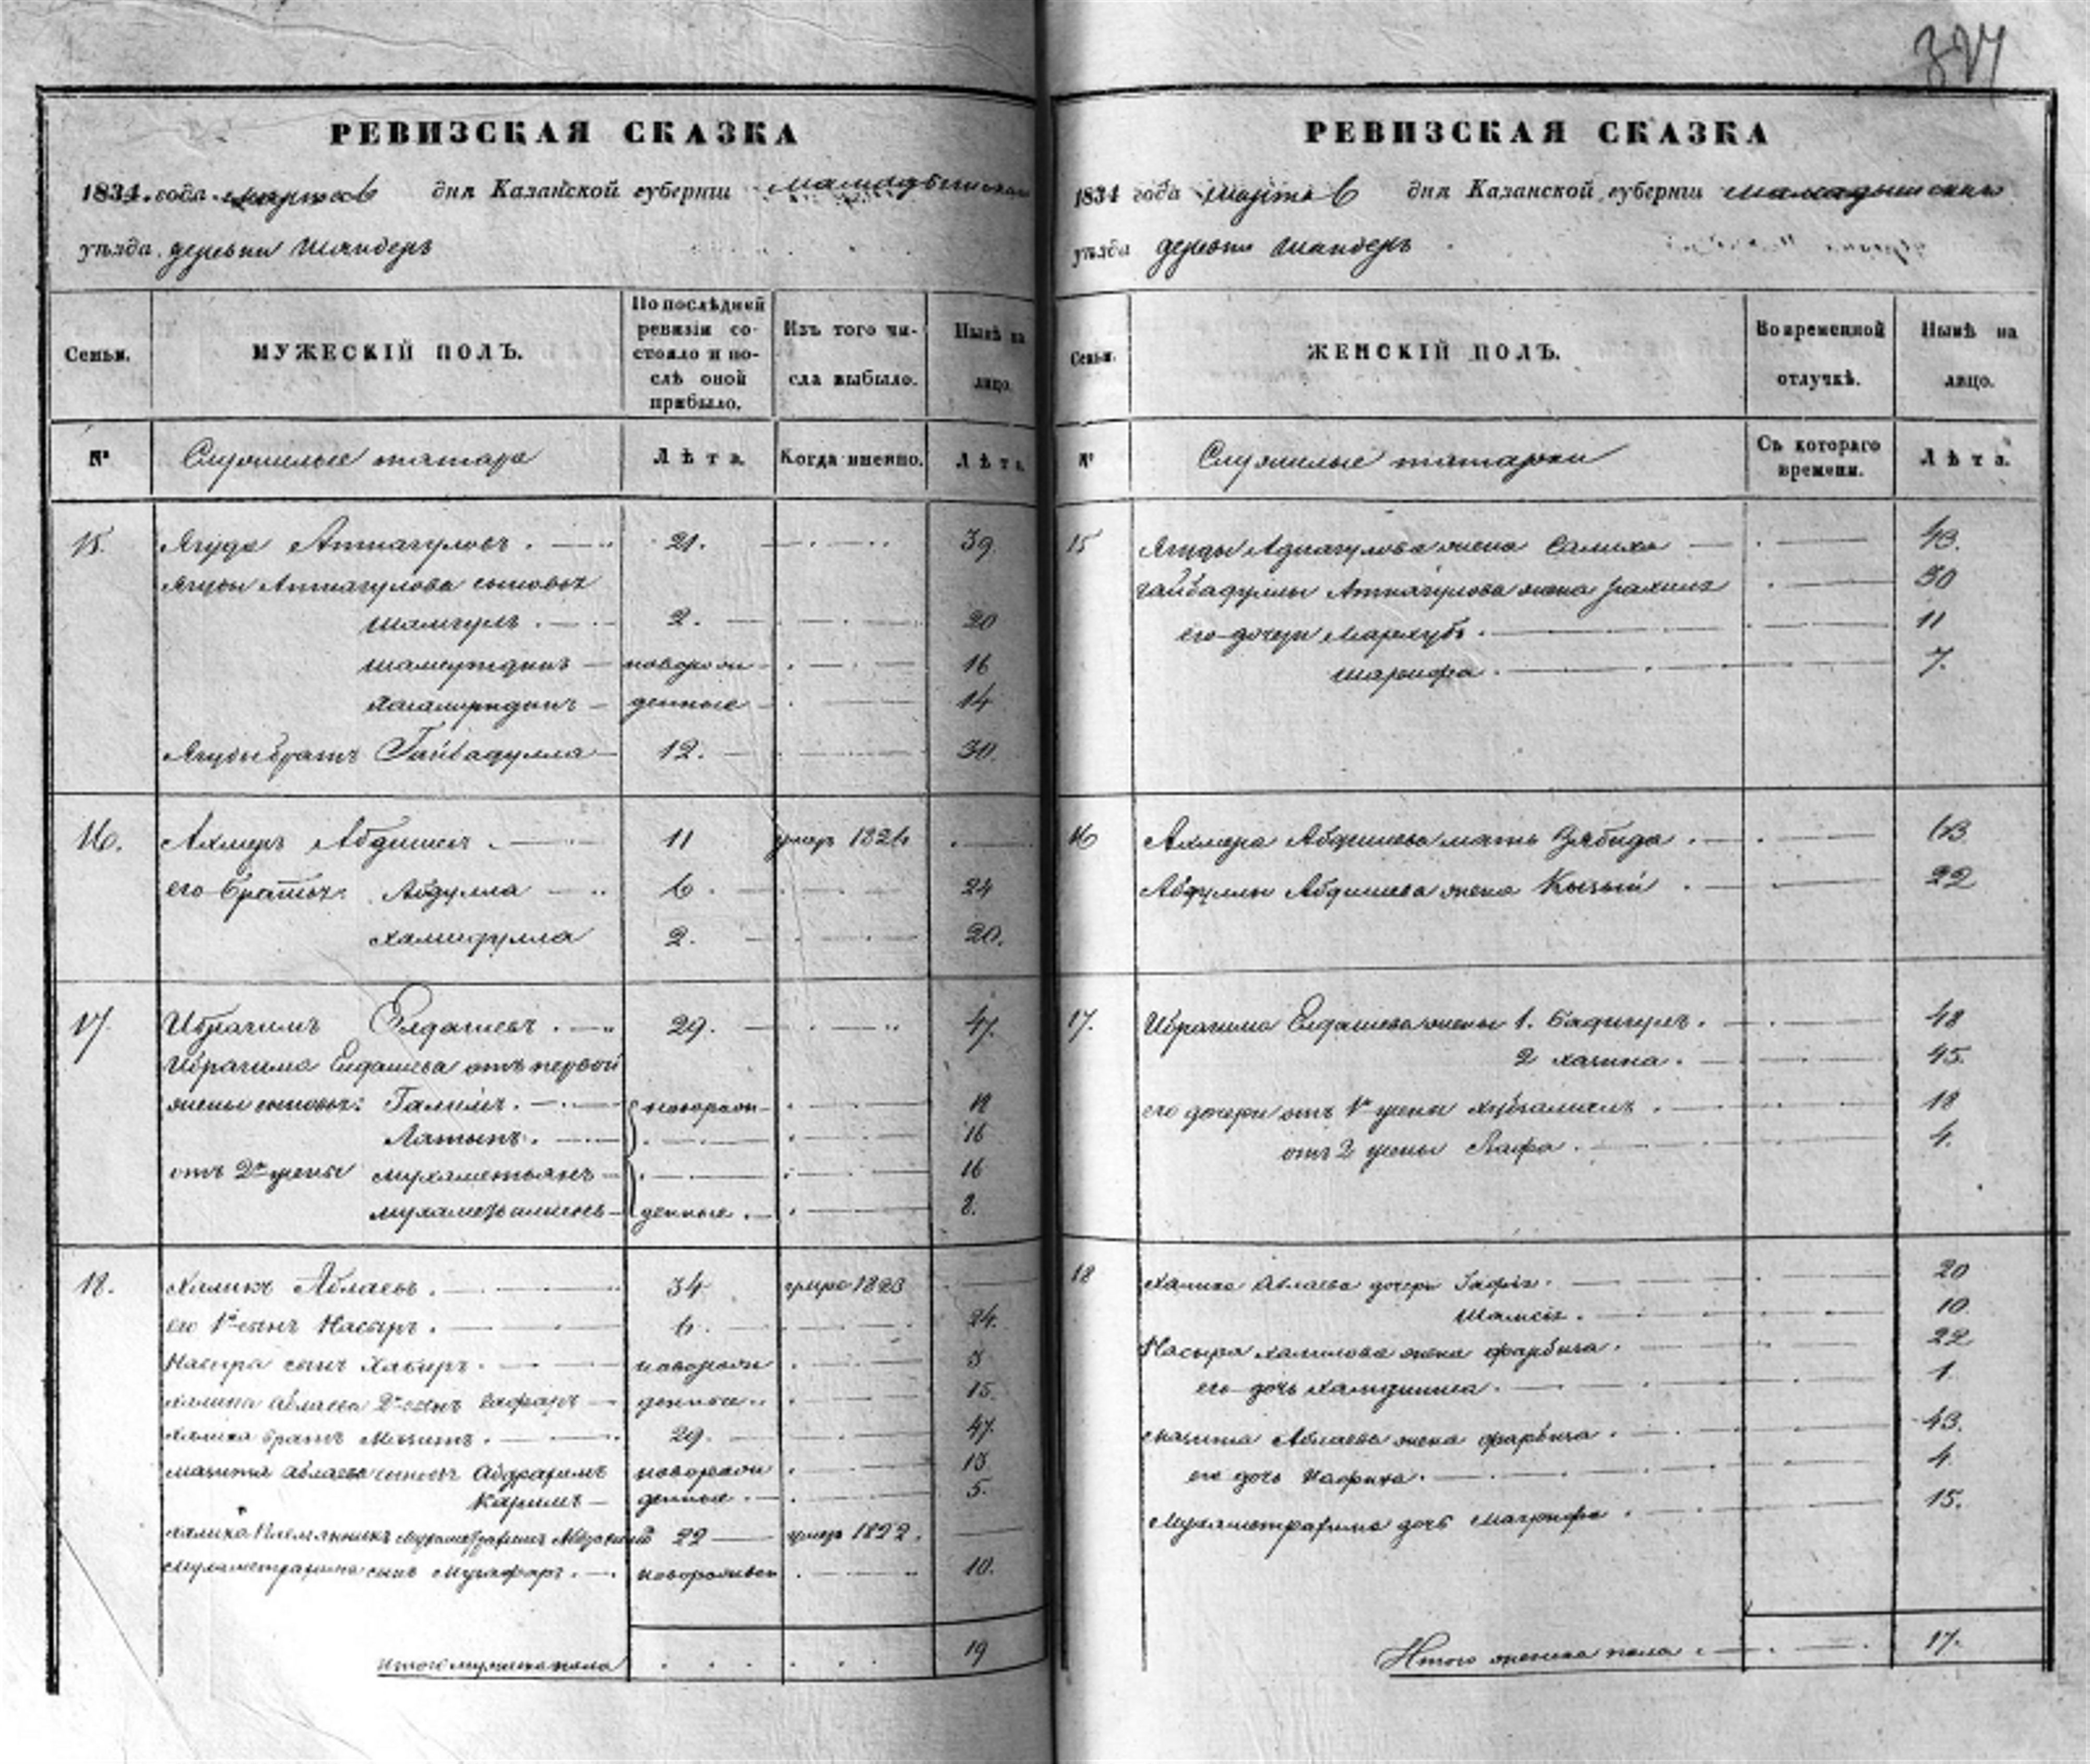 327
РЕВИЗСКАЯ СКАЗКА
1834 года марта 6 дня Казанской губернiи Мамадышскаго
уѣзда деревни Шандеръ
Семьи.
МУЖЕСКIЙ ПОЛЪ.
По послѣдней ревизiи со-
стояло и по-
слѣ оной
прибыло.
Изъ того чи-
сла выбыло.
Нынѣ на
лицо.
№
Служилые татара
Лѣта.
Когда именно.
Лѣта.
15. Ягуда Аппагуловъ. 21. 39.
Ягуды Аппагулова сыновья
Шамгулъ. 2. 20
новорож 16
денные 14
Ягуды братъ Гайбадулла 12. 30.
16. Ахмеръ Абдишевъ. 11 умеръ 1826
его братья: Абдулла 6. 24
Хамидулла 2. 20.
17 Ибрагимъ Елдашевъ. 29. 47.
Ибрагима Елдашева отъ первой
жены сыновья: Галимъ. новорож
Латыпъ. 16
отъ 2й жены Мухаметьянъ 16
денные. 8.
18. Халикъ Аблаевъ. 34 умеръ 1823
его 1й сынъ Насыръ. 6. 24.
Насыра сынъ Хабиръ. новорож 3
Халика Аблаева 2й сынъ Гафаръ денные 15.
Халика братъ Мазитъ. 29. 47.
Мазита Аблаева сыновья Абдрахимъ новорож 13.
Каримъ денные 5.
Халика племянникъ 22 умеръ 1822.
Мухаметрахима сынъ Музафаръ. новорожден 10.
Итого мужеска пола 19
РЕВИЗСКАЯ СКАЗКА
1834 года марта 6 дня Казанской губернiи Мамадышскаго
уѣзда деревни Шандеръ
Семьи.
ЖЕНСКIЙ ПОЛЪ.
Во временной
отлучкѣ.
Нынѣ на
лицо.
№
Служилые татарки
Съ котораго
времени.
Лѣта.
15 Ягуды Аппагулова жена Салиха 43.
Гайбадуллы Аппагулова жена Рахиля 30
его дочери Мархуба. 11
Шарифа. 7.
16 Ахмера Абдишева мать Зябида. 63.
Абдуллы Абдишева жена 22
17. Ибрагима Елдашева жены 1. Бадигулъ. 48
2 Хазина. 45.
его дочери отъ 1й жены 18
отъ 2 жены 4.
18 Халика Аблаева дочери 20
Шамси. 10.
Насыра Халикова жена Фарбиза. 22
его дочь 1.
Мазита Аблаева жена Фарбиза. 43.
его дочь 4
Мухаметрахима дочь Магруфа. 15.
Итого женска пола 17.